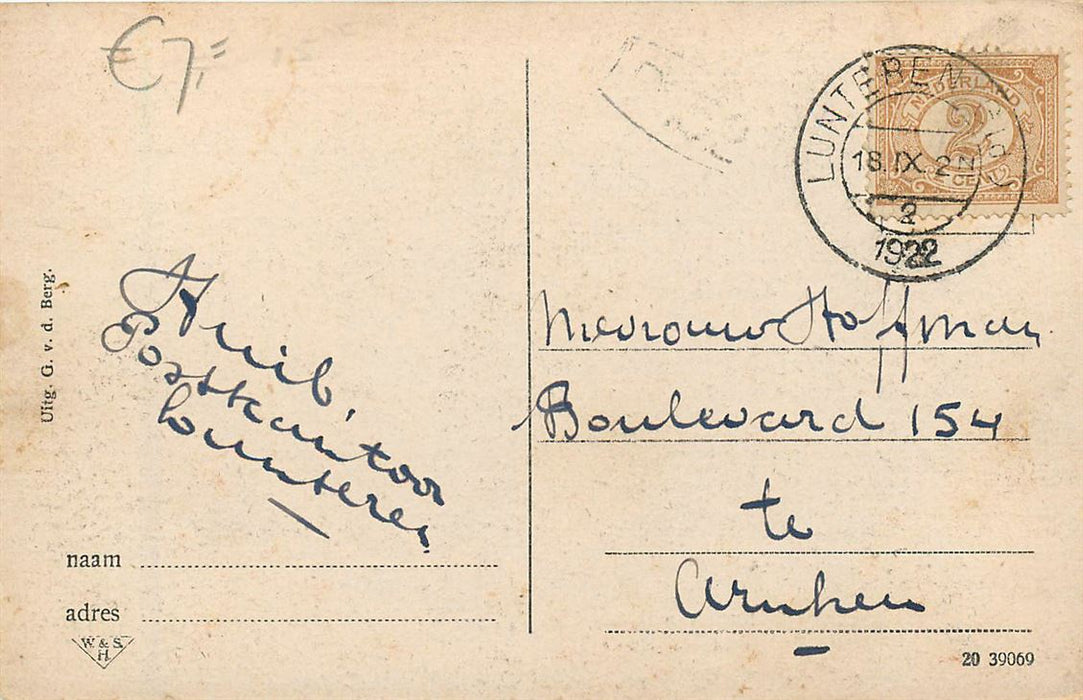 €7,=
LUNTEREN
18.IX.2N
2
1922
NEDERLAND
2
Uitg. G. v. d. Berg.
Huib,
Postkantoor
Lunteren
Mevrouw Hoffman
Boulevard 154
te
Arnhem
naam
adres
W. & S.
H
20 39069